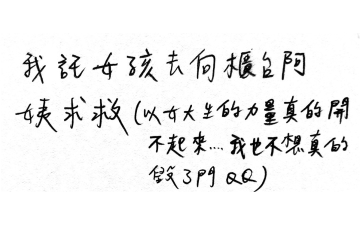 我託女孩去向櫃台阿
姨求救(以女大生的力量真的開
不起來...我也不想真的
毀了門QQ)